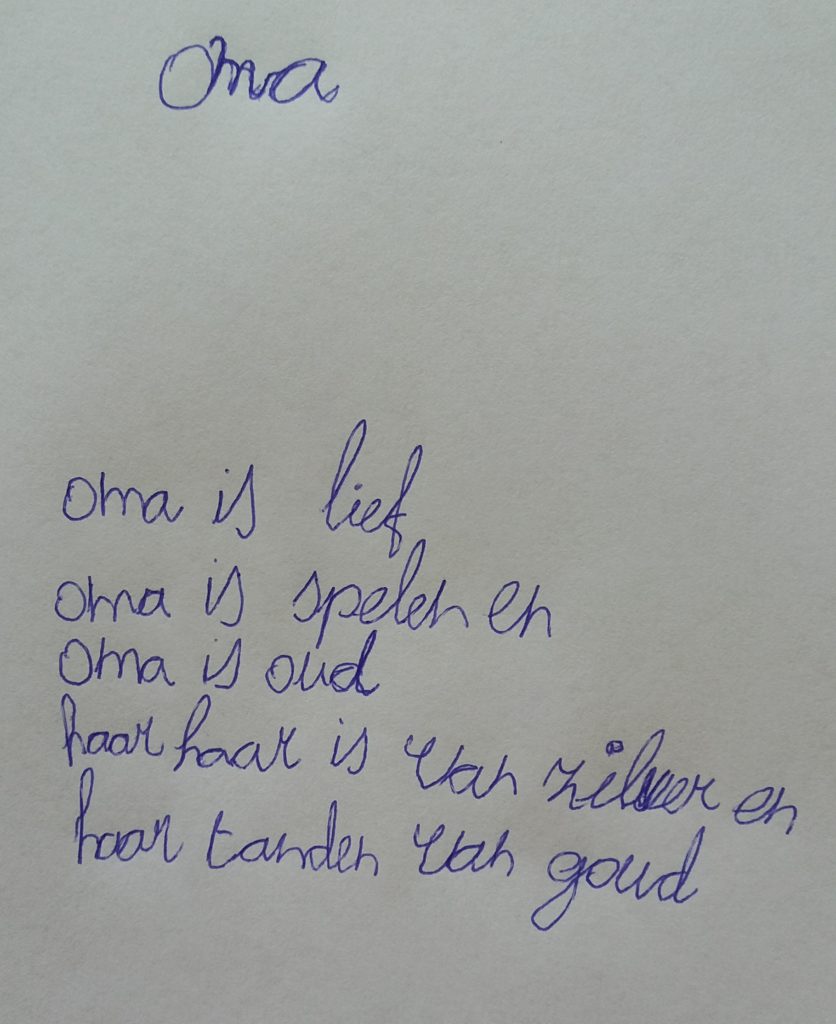 Oma
oma is lief
oma is spelen en
oma is oud
haar haar is van zilver en
haar tanden van goud